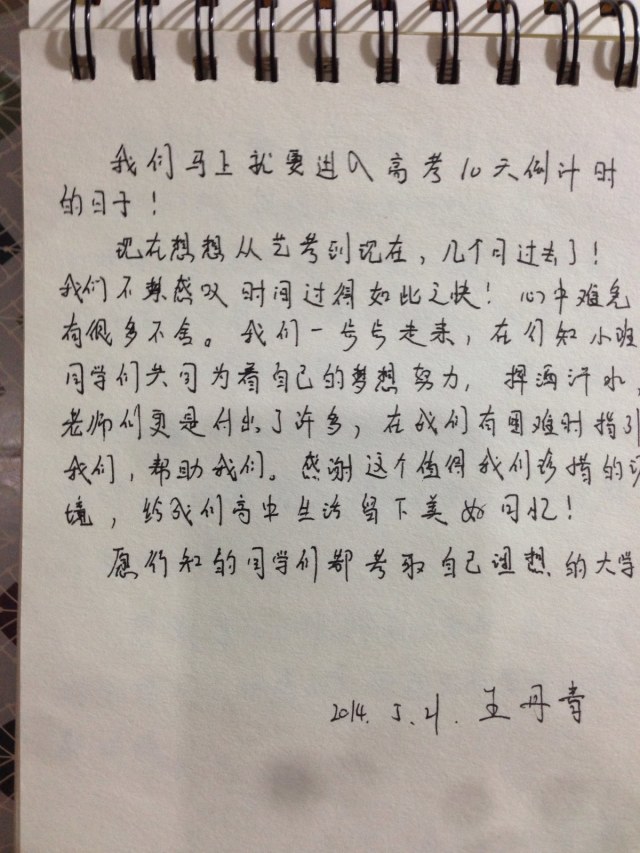 我们马上就要进入高考10天倒计时
的日子！
现在想想从艺考到现在，几个月过去了！
我们不禁感叹时间过得如此之快！心中难免
有很多不舍。我们一步步走来，在行知小班
同学们共同为着自己的梦想努力，挥洒汗水，
老师们更是付出了许多，在我们有困难时指引
我们，帮助我们。感谢这个值得我们珍惜的环
境，给我们高中生活留下美好回忆！
愿行知的同学们都考取自己理想的大学
2014.5.21.王丹青